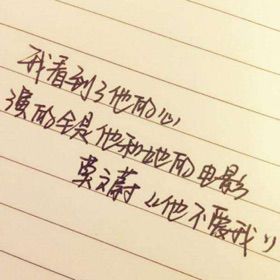 我看到了他的心
演的全是他和她的电影
莫文蔚《他不爱我》